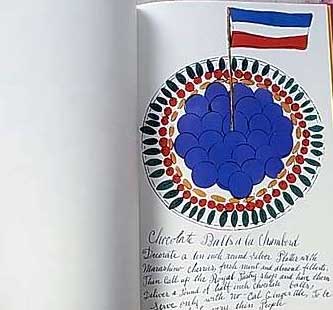 Chocolate Balls a la Chambord
Decorate a ten inch round silver Plater with
Marashino cherries, fresh mint and almond fillents,
Then Call up the Royal Pastry shop and have them
deliver a Pound of half inch chocolate balls,
Serve only with no-Cal Ginger Ale, To be
very thin People